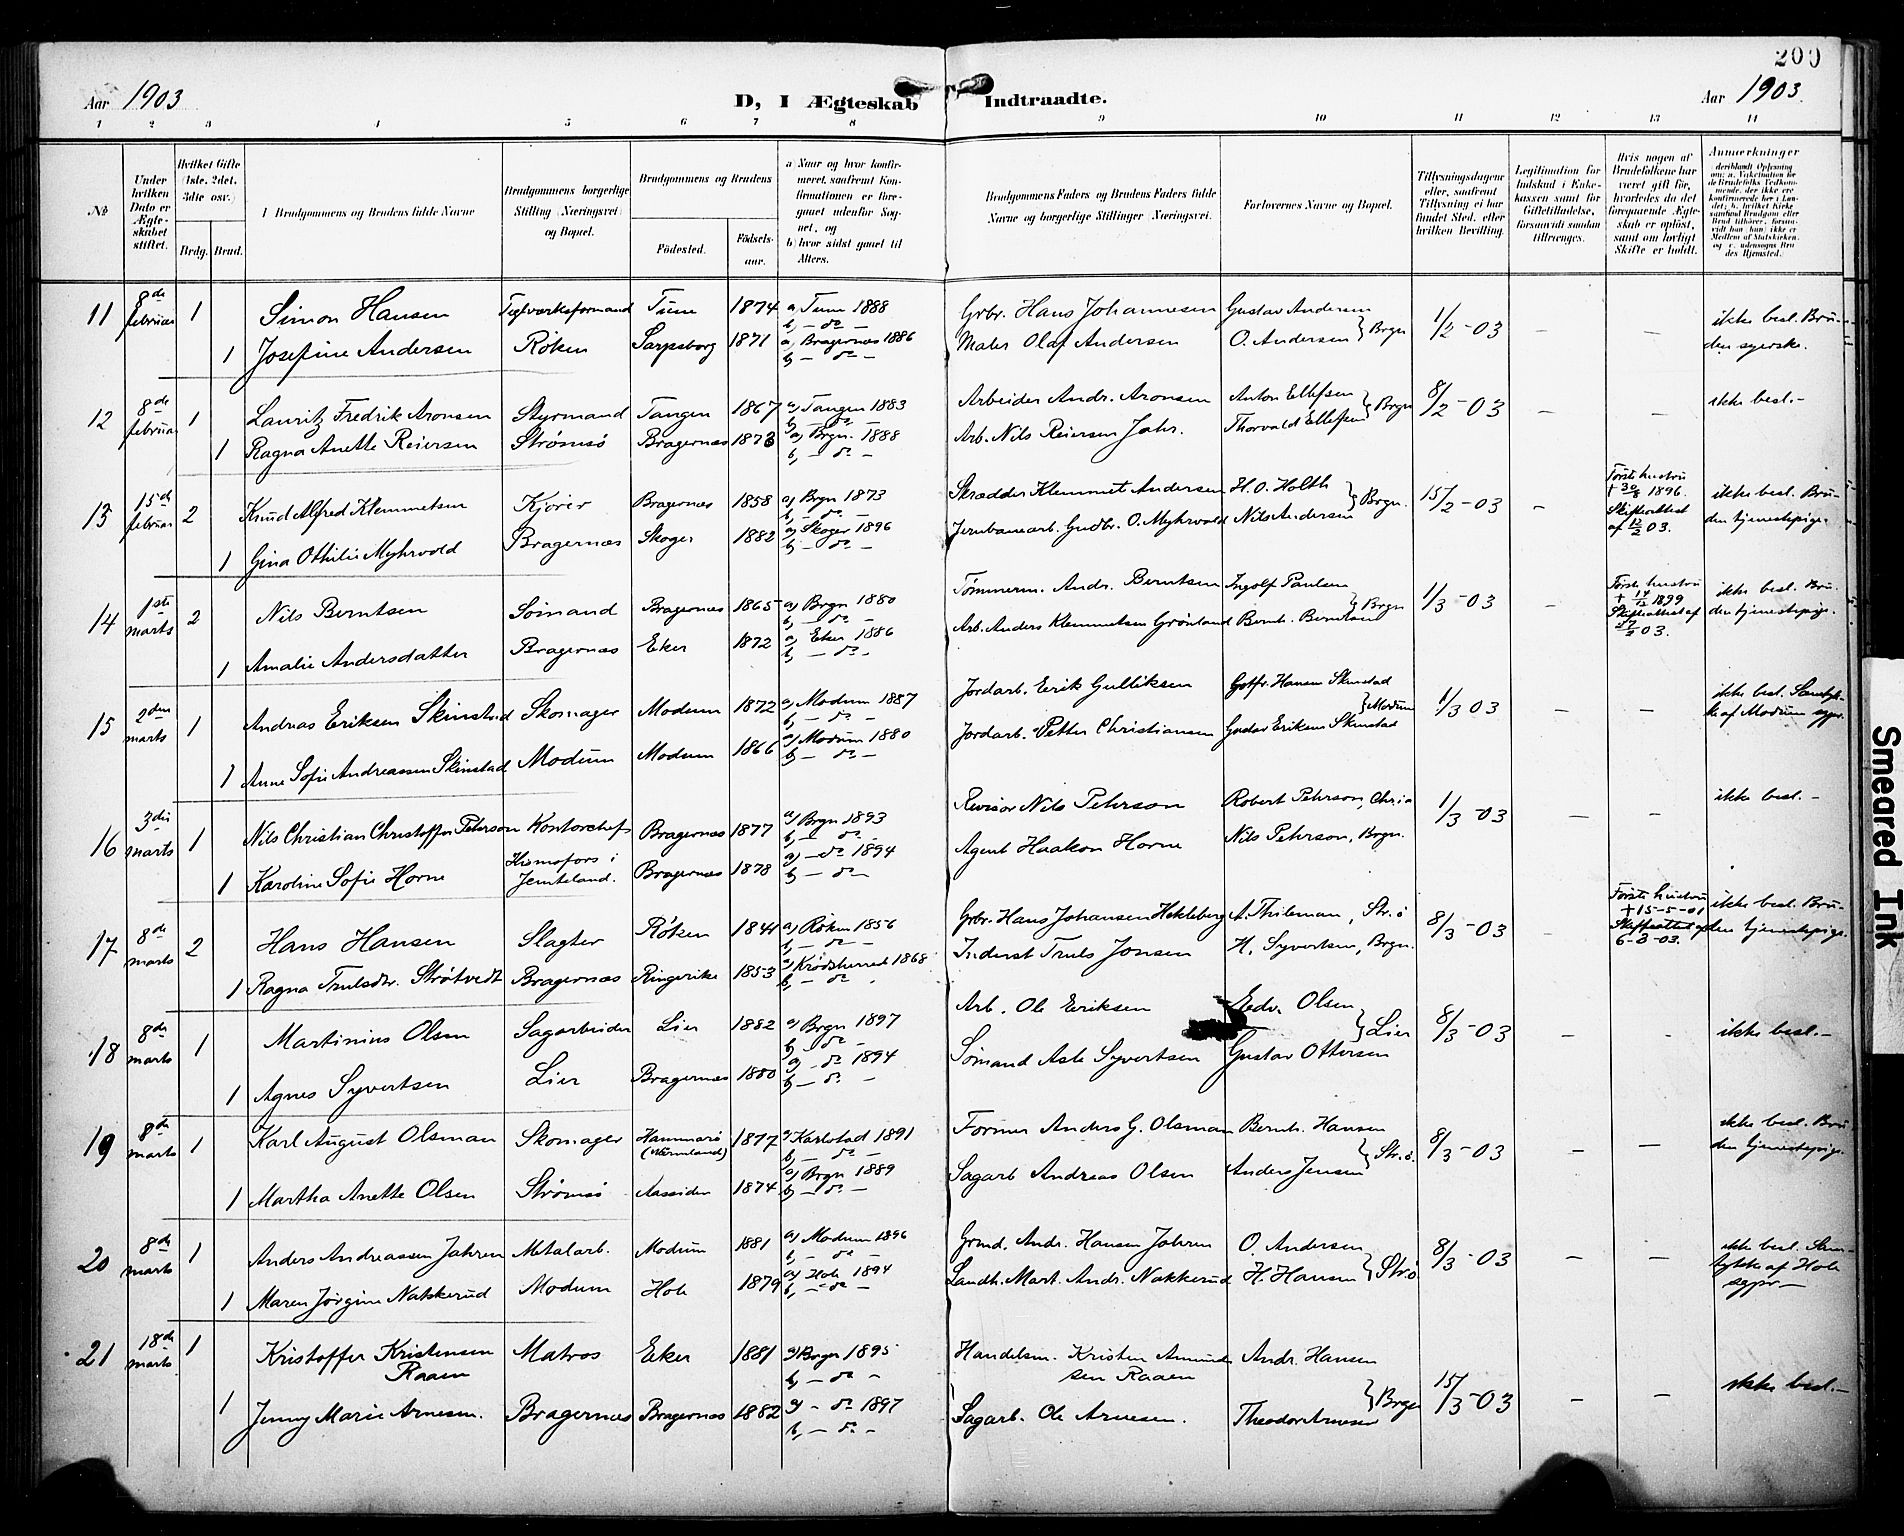 200
Aar 1903
D, I Ægteskab Indtraadte.
Aar 1903.
1 2 3 4 5 6 7 8 9 10 11 12 13 14
No
Under hvilken Dato er Ægteskabet stiftet.
Hvilket Gifte (1ste, 2det, 3die osv.)
Brdg. Brud.
Brudgommens og Brudens fulde Navne
Brudgommens borgerlige Stilling (Næringsvei) og Bopæl.
Brudgommens og Brudens
Födested. Födselsaar.
a) Naar og hvor konfirmeret, saafremt Konfirmationen er foregaaet udenfor Sognet, og
b) hvor sidst gaaet til Alters.
Brudgommens Faders og Brudens Faders fulde Navne og borgerlige Stillinger (Næringsvei).
Forlovernes Navne og Bopæl.
Tillysningsdagene eller, saafremt Tillysning ei har fundet Sted, efter hvilken Bevilling.
Legitimation for Indskud i Enkekassen samt for Giftetilladelse, forsaavidt saadan tiltrænges.
Hvis nogen af Brudefolkene har været gift før, hvorledes da det foregaaende Ægteskab er oplöst, samt om lovligt Skifte er holdt.
Anmærkninger
11 8de februar 1 Simon Hansen Teglværksformand Tune 1874 a) Tune 1888 b, – do – Grbr. Hans Johannesen Gustav Andersen 1/2 - 03 – – ikke besl. Bru-
1 Josefine Andersen Röken Sarpsborg 1871 a) Bragernæs 1886 b – do – Maler Olaf Andersen O. Andersen } Brgn den syerske.
12 8de februar 1 Lauritz Fredrik Aronsen Styrmand Tangen 1867 a) Tangen 1883 b – do – Arbeider Andr. Aronsen Anton Ellefsen 8/2 - 03 – – ikke besl. –
1 Ragna Anette Reiersen Strømsö Bragernæs 1873 a) Brgn. 1888 b, – do – Arb. Nils Reiersen Jahr. Thorvald Ellefsen } Brgn
13 15de februar 2 Knud Alfred Klemmetsen Kjører Bragernæs 1858 a) Brgn 1873 b, – do – Skrædder Klemmet Andersen H. O. Holth 15/2 - 03 – Første hustru + 30/8 1896. Skifteattest af 12/2 03. ikke besl. Bru-
1 Gina Othilie Myhrvold Bragernæs Skoger 1882 a) Skoger 1896 b – do – Jernbanearb. Gudbr. O. Myhrvold Nils Andersen } Brgn. den tjenestepige
14 1ste marts 2 Nils Berntsen Sömand Bragernæs 1865 a) Brgn 1880 b, – do – Tømmerm. Andr. Berntsen Ingolf Paulsen 1/3 - 03 – Første hustru + 14/12 1899 Skifteattest af 03. ikke besl. Bru-
1 Amalie Andersdatter Bragernæs Eker 1872 a) Eker 1886 b, – do – Arb. Anders Klemmetsen Grønland Bernh. Berntsen } Brgn den tjenestepige.
15 2den marts 1 Andreas Eriksen Skinstad Skomager Modum 1872 a) Modum 1887 b, – do – Jordarb. Erik Gulliksen Gotfr. Hansen Skinstad 1/3 03 – – ikke besl. Samtyk-
1 Anne Sofie Andreassen Skinstad Modum Modum 1866 a) Modum 1880 b – do – Jordarb. Petter Christiansen Gustav Eriksen Skinstad } Modum ke af Modum sgpr.
16 3die marts 1 Nils Christian Christoffer Pehrson Kontorchef Bragernæs 1877 a) Brgn 1893 b, – do – Revisor Nils Pehrson Robert Pehrson, Chria 1/3 - 03 – – ikke besl. –
1 Karoline Sofie Horne i Jemteland. Bragernæs 1878 a) – do 1894 b – do – Agent Haakon Horne Nils Pehrson, Brgn.
17 8de marts 2 Hans Hansen Slagter Röken 1841 a) Röken 1856 b, – do – Grbr. Hans Johansen Hekleberg A. Thileman, Str.ö 8/3 - 03 – Første hustru + 15-5-01 Skifteattest af 6-3-03. ikke besl. Bru-
1 Ragna Trulsdtr. Strötvedt Bragernæs Ringerike 1853 a) Krødsherred 1868 b, – do Inderst Truls Jonsen H. Syvertsen, Brgn. den tjenestepige.
18 8de marts 1 Martinius Olsen Sagarbeider Lier 1882 a) Brgn 1897 b – do – Arb. Ole Eriksen Edv. Olsen 8/3 - 03 – – ikke besl. –
1 Agnes Syvertsen Lier Bragernæs 1880 a) – do 1894 b – do – Sømand Asle Syvertsen Gustav Ottersen } Lier
19 8de marts 1 Karl August Olsman Skomager Hammarö (Värmland) 1877 a) Karlstad 1891 b, – do – Former Anders G. Olsman Bernh. Hansen 8/3 - 03 – – ikke besl. Bru
1 Martha Anette Olsen Strömsö Aassiden 1874 a) Brgn 1889 b – do – Sagarb Andreas Olsen Anders Jensen } Str.ö. den tjenestepige
20 8de marts 1 Anders Andreassen Jahren Metalarb. Modum 1881 a) Modum 1896 b, – do – Grmd. Andr. Hansen Jahren O. Andersen 8/3 - 03 – – ikke besl. Sam-
1 Maren Jörgine Nakkerud Modum Hole 1879 a) Hole 1894 b, – do – Landh. Mart. Andr. Nakkerud H. Hansen } Strö tykke af Hole sgpr –
21 18de marts 1 Kristoffer Kristensen Raaen Matros Eker 1881 a) Brgn 1895 b, – do – Handelsm. Kristen Amundsen Raaen Andr. Hansen 15/3 - 03 – – ikke besl. –
1 Jenny Marie Arnesen. Bragernæs Bragernæs 1882 a) – do 1897 b, – do – Sagarb. Ole Arnesen. Theodor Arnesen } Brgn
Smeared Ink